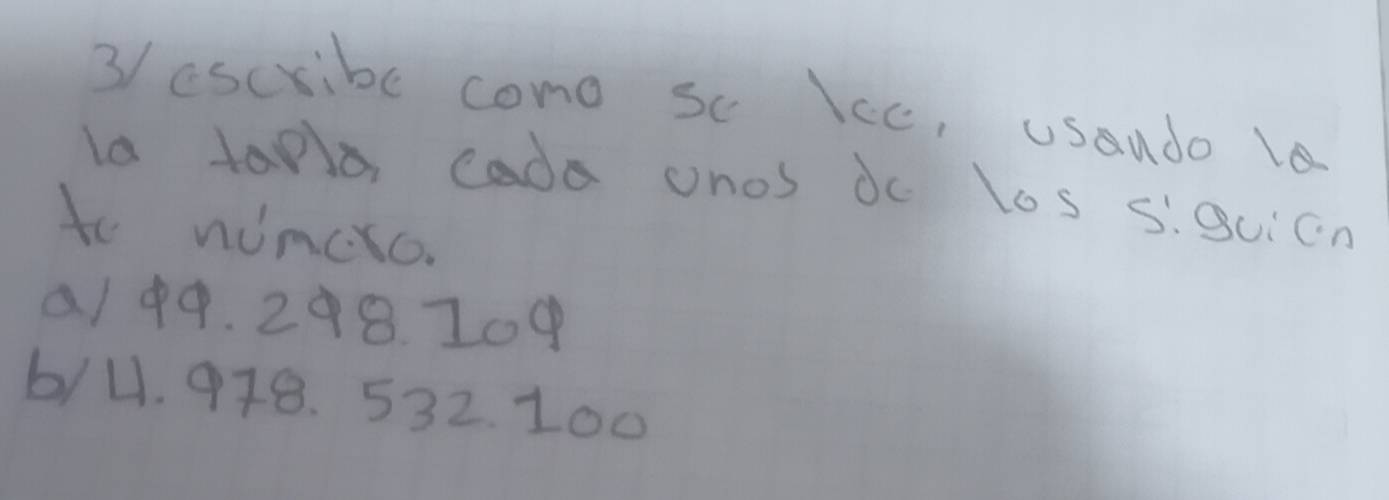 3/ escribe como se lee, usando la
la tapla, cada unos de los siguien
te número.
a/ 99.298.109
b/ 4.978.532.100